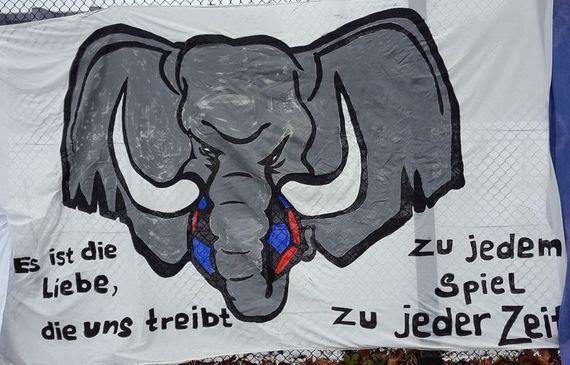 Es ist die
Liebe,
die uns treibt
zu jedem
Spiel
zu jeder Zeit